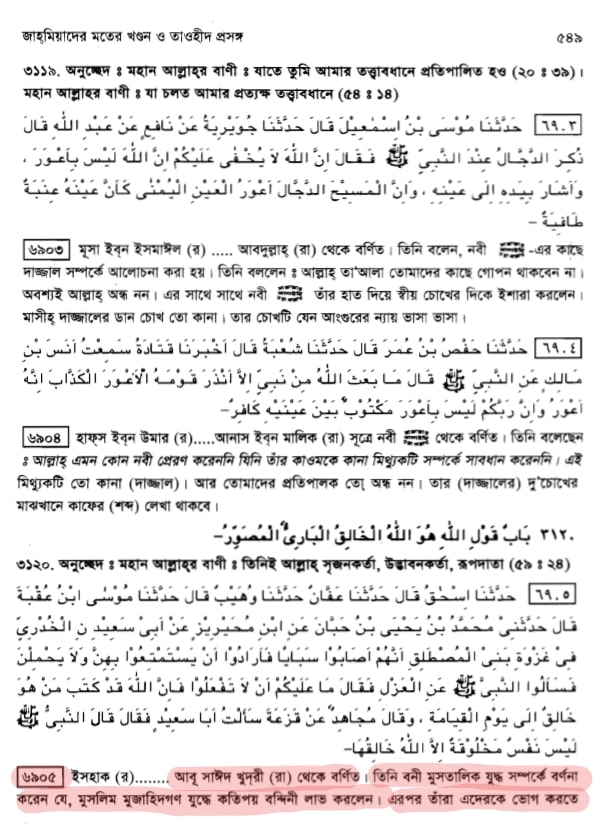 জাহ্‌মিয়াদের মতের খণ্ডন ও তাওহীদ প্রসঙ্গ ৫৪৯
৩১১৯. অনুচ্ছেদ ঃ মহান আল্লাহ্‌র বাণী ঃ যাতে তুমি আমার তত্ত্বাবধানে প্রতিপালিত হও (২০ ঃ ৩৯)।
মহান আল্লাহ্‌র বাণী ঃ যা চলত আমার প্রত্যক্ষ তত্ত্বাবধানে (৫৪ ঃ ১৪)
٦٩.٣ حَدَّثَنَا مُوْسَى بْنُ اسْمٰعِيْلَ قَالَ حَدَّثَنَا جُوَيْرِيَةُ عَنْ نَافِعٍ عَنْ عَبْدِ اللّٰهِ قَالَ
ذُكِرَ الدَّجَّالُ عِنْدَ النَّبِيِّ ﷺ فَقَالَ اِنَّ اللّٰهَ لاَ يَخْفٰى عَلَيْكُمْ اِنَّ اللّٰهَ لَيْسَ بِاَعْوَرَ ،
وَاَشَارَ بِيَدِهِ اِلَى عَيْنِهِ ، وَاِنَّ الْمَسِيْحَ الدَّجَّالَ اَعْوَرُ الْعَيْنِ الْيُمْنٰى كَاَنَّ عَيْنَهُ عِنَبَةٌ
طَافِيَةٌ –
৬৯০৩ মূসা ইব্‌ন ইসমাঈল (র) ..... আবদুল্লাহ্ (রা) থেকে বর্ণিত। তিনি বলেন, নবী ﷺ -এর কাছে
দাজ্জাল সম্পর্কে আলোচনা করা হয়। তিনি বললেন ঃ আল্লাহ্ তা'আলা তোমাদের কাছে গোপন থাকবেন না।
অবশ্যই আল্লাহ্ অন্ধ নন। এর সাথে সাথে নবী ﷺ তাঁর হাত দিয়ে স্বীয় চোখের দিকে ইশারা করলেন।
মাসীহ্ দাজ্জালের ডান চোখ তো কানা। তার চোখটি যেন আংগুরের ন্যায় ভাসা ভাসা।
٦٩.٤ حَدَّثَنَا حَفْصُ بْنُ عُمَرَ قَالَ حَدَّثَنَا شُعْبَةُ قَالَ اَخْبَرَنَا قَتَادَةُ سَمِعْتُ اَنَسَ بْنِ
مَالِكٍ عَنِ النَّبِيِّ ﷺ قَالَ مَا بَعَثَ اللّٰهُ مِنْ نَبِيٍّ اِلاَّ اَنْذَرَ قَوْمَهُ الْاَعْوَرَ الْكَذَّابَ اِنَّهُ
اَعْوَرُ وَاِنَّ رَبَّكُمْ لَيْسَ بِاَعْوَرَ مَكْتُوْبٌ بَيْنَ عَيْنَيْهِ كَافِرٌ–
৬৯০৪ হাফ্‌স ইব্‌ন উমার (র).....আনাস ইব্‌ন মালিক (রা) সূত্রে নবী ﷺ থেকে বর্ণিত। তিনি বলেছেন
ঃ আল্লাহ্ এমন কোন নবী প্রেরণ করেননি যিনি তাঁর কাওমকে কানা মিথ্যুকটি সম্পর্কে সাবধান করেননি। এই
মিথ্যুকটি তো কানা (দাজ্জাল)। আর তোমাদের প্রতিপালক তো অন্ধ নন। তার (দাজ্জালের) দু'চোখের
মাঝখানে কাফের (শব্দ) লেখা থাকবে।
٣١٢٠. بَابُ قَوْلِ اللّٰهِ هُوَ اللّٰهُ الْخَالِقُ الْبَارِئُ الْمُصَوِّرُ–
৩১২০. অনুচ্ছেদ ঃ মহান আল্লাহ্‌র বাণী ঃ তিনিই আল্লাহ্ সৃজনকর্তা, উদ্ভাবনকর্তা, রূপদাতা (৫৯ ঃ ২৪)
٦٩.٥ حَدَّثَنَا اِسْحٰقُ قَالَ حَدَّثَنَا عَفَّانُ حَدَّثَنَا وُهَيْبٌ قَالَ حَدَّثَنَا مُوْسٰى ابْنُ عُقْبَةَ
قَالَ حَدَّثَنِيْ مُحَمَّدُ بْنُ يَحْيٰى بْنِ حَبَّانَ عَنِ ابْنِ مُحَيْرِيْزٍ عَنْ اَبِىْ سَعِيْدٍ نِ الْخُدْرِيِّ
فِىْ غَزْوَةِ بَنِىْ الْمُصْطَلِقِ اَنَّهُمْ اَصَابُوْا سَبَايَا فَاَرَادُوْا اَنْ يَسْتَمْتِعُوْا بِهِنَّ وَلاَ يَحْمِلْنَ
فَسَاَلُوا النَّبِيَّ ﷺ عَنِ الْعَزْلِ فَقَالَ مَا عَلَيْكُمْ اَنْ لاَ تَفْعَلُوْا فَاِنَّ اللّٰهَ قَدْ كَتَبَ مَنْ هُوَ
خَالِقٌ اِلٰى يَوْمِ الْقِيَامَةِ ، وَقَالَ مُجَاهِدٌ عَنْ قَزَعَةَ سَاَلْتُ اَبَا سَعِيْدٍ فَقَالَ قَالَ النَّبِيُّ ﷺ
لَيْسَ نَفْسٌ مَخْلُوْقَةٌ اِلاَّ اللّٰهُ خَالِقُهَا–
৬৯০৫ ইসহাক (র)........ আবূ সাঈদ খুদ্‌রী (রা) থেকে বর্ণিত। তিনি বনী মুসতালিক যুদ্ধ সম্পর্কে বর্ণনা
করেন যে, মুসলিম মুজাহিদগণ যুদ্ধে কতিপয় বন্দিনী লাভ করলেন। এরপর তাঁরা এদেরকে ভোগ করতে